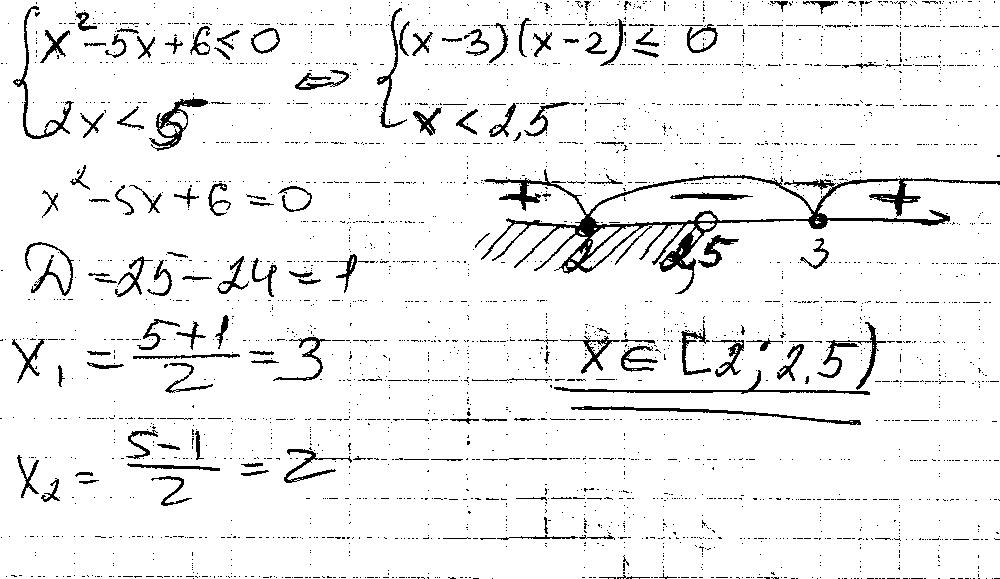 { x² - 5x + 6 ≤ 0 ⇔ { (x - 3)(x - 2) ≤ 0
2x < 5 x < 2,5
x² - 5x + 6 = 0
D = 25 - 24 = 1
x₁ = (5 + 1)/2 = 3
x₂ = (5 - 1)/2 = 2
+ − +
2 2,5 3
x ∈ [2; 2,5)